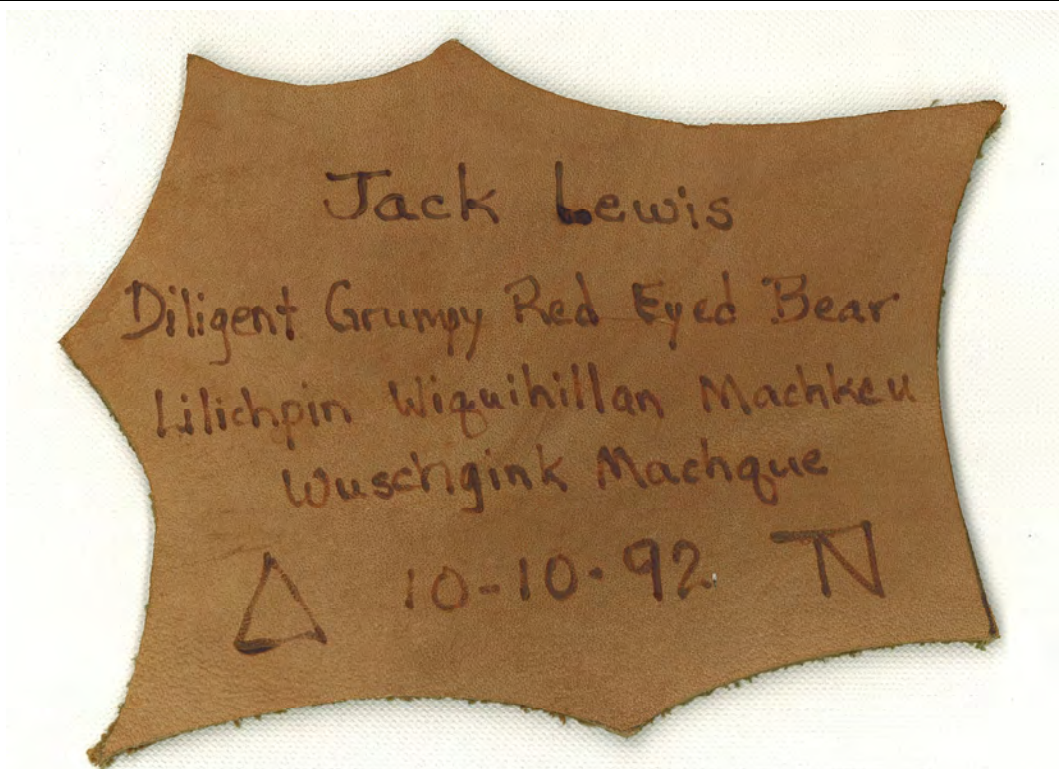 Jack Lewis
Diligent Grumpy Red Eyed Bear
Lilichpin Wiquihillan Machkeu
Wuschgink Machque
Δ 10-10-92